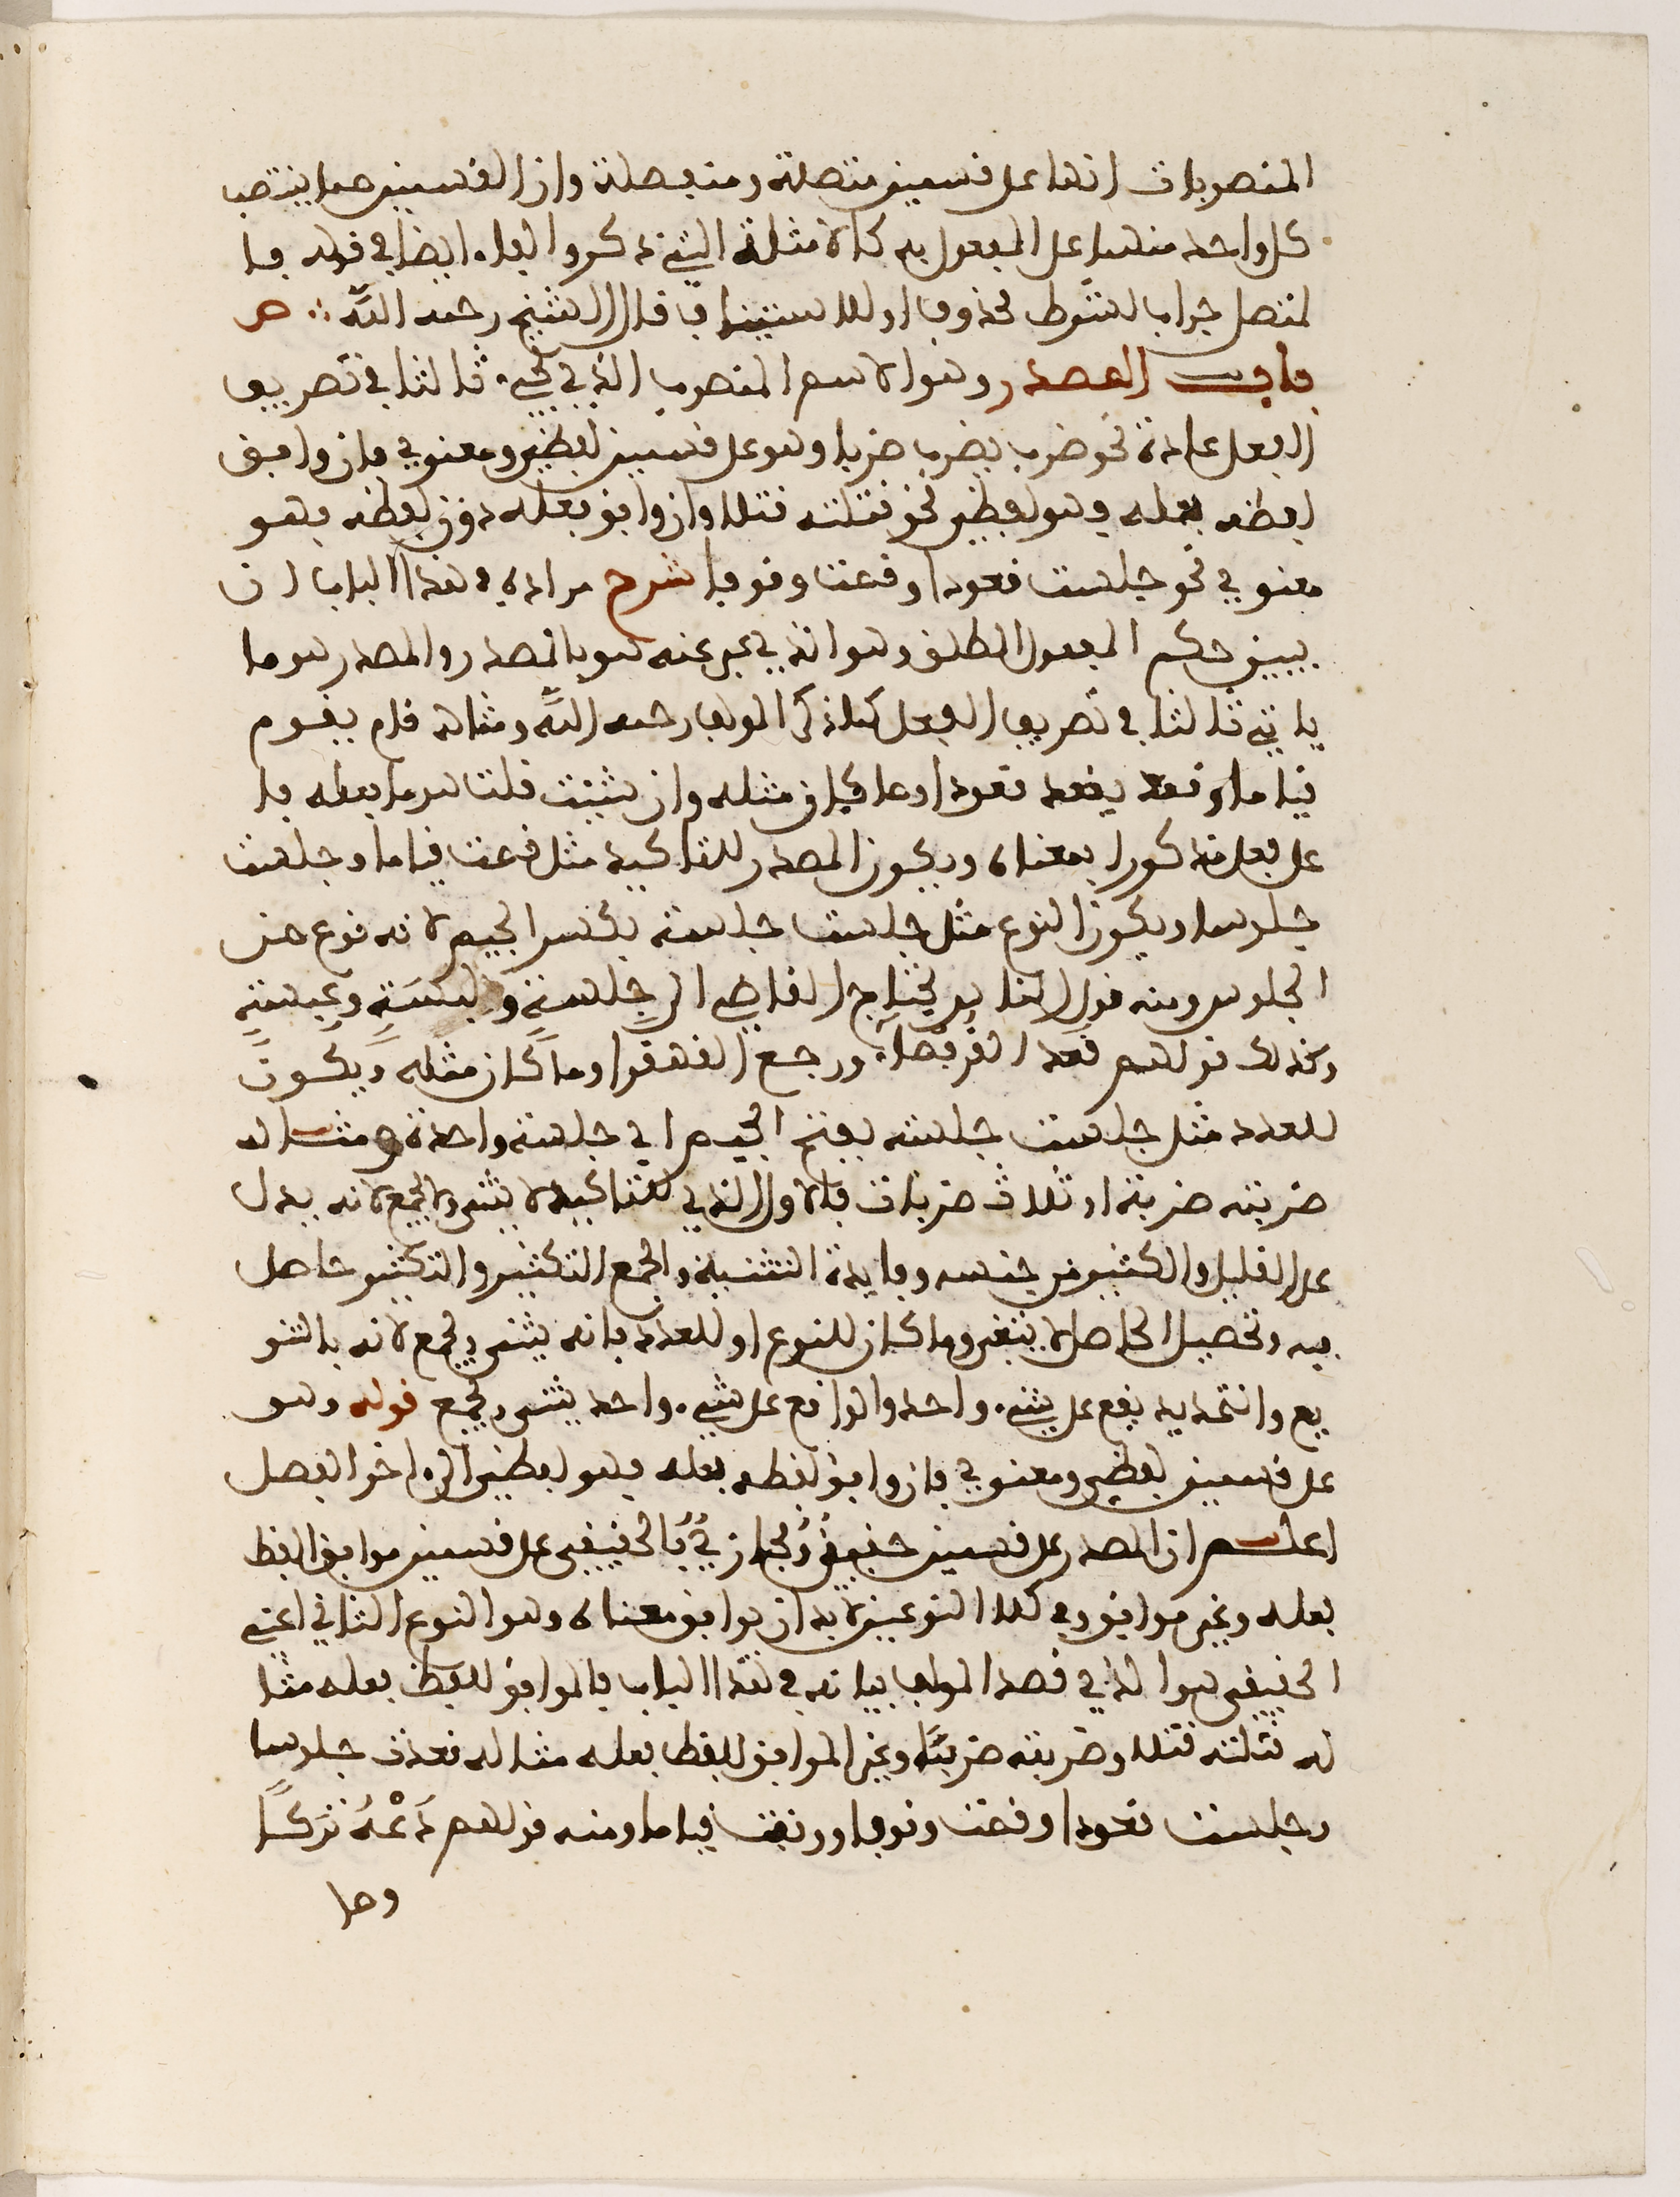 المنصوبات انها على قسمين متصلة ومنفصلة وان القسمين مما ينتصب
كل واحد منهما على المفعول به كالامثلة التي ذكر والفاء ايضا في قوله فا
لمتصل جواب لشرط محذوف او للاستيناف قال الشيخ رحمه الله ∴ ص
باب المصدر وهو الاسم المنصوب الذي يجيء ثالثا في تصريف
الفعل عادة نحو ضرب يضرب ضربا وهو على قسمين لفظي ومعنوي فان وافق
لفظه فعله فهو لفظي نحو قتلته قتلا وان وافق فعله دون لفظه فهو
معنوي نحو جلست قعودا وقمت وقوفا شرح مراده في هذا الباب ان
يبين حكم المفعول المطلق وهو الذي يعبر عنه هو بالمصدر والمصدر هو ما
ياتي ثالثا في تصريف الفعل كما ذكر المولف رحمه الله ومثاله قام يقوم
قياما وقعد يقعد قعودا وما كان مثله وان شيت قلت هو ما فعله فا
عل فعل مذكور بمعناه ويكون المصدر للتاكيد مثل قمت قياما وجلست
جلوسا ويكون النوع مثل جلست جلسة بكسر الجيم لانه نوع من
الجلوس ومنه قول الناس يحتاج القاضي الى جلسة ولبسة وعبسة
وكذلك قولهم قعد القرفصاء ورجع القهقرا وما كان مثله ويكون
للعدد مثل جلست جلسة بفتح الجيم اي جلسة واحدة ومثاله
ضربته ضربة او ثلاث ضربات فالاول الذي للتاكيد لا يثنى ولا يجمع لانه يدل
على القليل والكثير من جنسه وفايدة التثنية والجمع التكثير والتكثير حاصل
فيه وتحصيل الحاصل لا ينبغي وما كان للنوع او للعدد فانه يثنى ويجمع لانه بالتنو
يع والتحديد يقع على شيء واحد والواقع على شيء واحد يثنى ويجمع قوله وهو
على قسمين لفظي ومعنوي فان وافق لفظه فعله فهو لفظي الى اخر الفصل
اعلم ان المصدر على قسمين حقيقي ومجازي فالحقيقي على قسمين موافق للفظ
فعله وغير موافق وفي كلا النوعين لابد ان يوافق معناه وهو النوع الثاني اعني
الحقيقي هو الذي قصد المولف بيانه في هذا الباب فالموافق للفظ فعله مثا
له قتلته قتلا وضربته ضربا وغير الموافق للفظ فعله مثاله قعدت جلوسا
وجلست قعودا وقمت وقوفا ووقفت قياما ومنه قولهم دَعْهُ تركًا
وما